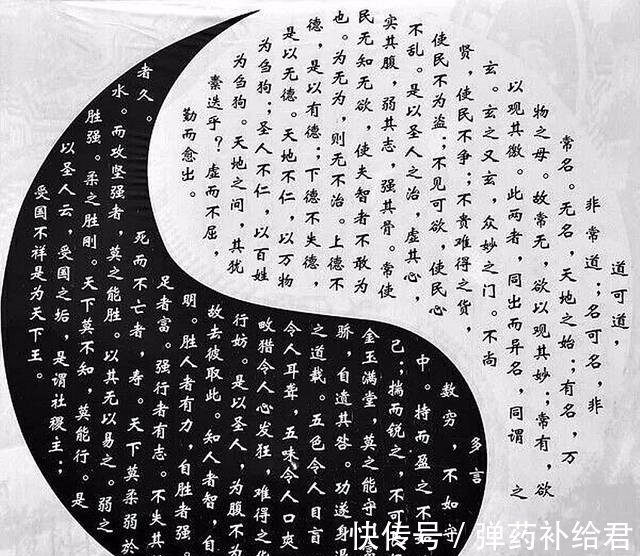 道可道，
非常道；名可名，非
常名。无名，天地之始；有名，万
物之母。故常无，欲以观其妙；常有，欲
以观其徼。此两者，同出而异名，同谓 之
玄。玄之又玄，众妙之门。不尚
贤，使民不争；不贵难得之货，
使民不为盗；不见可欲，使民心
不乱。是以圣人之治，虚其心，
实其腹，弱其志，强其骨。常使
民无知无欲，使夫智者不敢为
也。为无为，则无不治。上德不
德，是以有德；下德不失德，
是以无德。天地不仁，以万物
为刍狗；圣人不仁，以百姓
为刍狗。天地之间，其犹
迭乎？虚而不屈，
而愈出。
多言
数穷，不如守
中。持而盈之不
己；揣而锐之，不可
金玉满堂，莫之能守
骄，自遗其咎。功遂身退
之道哉。五色令人目盲
令人耳聋，五味令人口爽
畋猎令人心发狂，难得之货
行妨。是以圣人，为腹不为
故去彼取此。知人者智，自
明。胜人者有力，自胜者强。
足者富。强行者有志。不失其
者久。
死而不亡者，寿。天下莫柔弱於
水。而攻坚强者，莫之能胜。以其无以易之。弱之
胜强。柔之胜刚。天下莫不知，莫能行。是
以圣人云，受国之垢，是谓社稷主；
受国不祥是为天下王。
快传号／弹药补给君